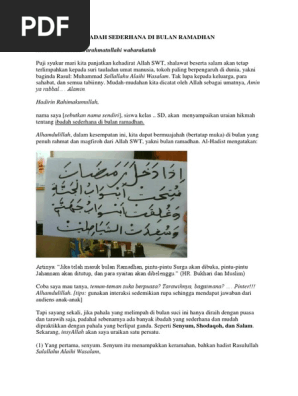 PDF
ADAH SEDERHANA DI BULAN RAMADHAN
arahmatullahi wabarakatuh
Puji syukur mari kita panjatkan kehadirat Allah SWT, shalawat beserta salam akan tetap
terlimpahkan kepada suri tauladan umat manusia, tokoh paling berpengaruh di dunia, yakni
baginda Rasul: Muhammad Sallallahu Alaihi Wasalam. Tak lupa kepada keluarga, para
sahabat, dan semua tabiinnya. Mudah-mudahan kita dicatat oleh Allah sebagai umatnya. Amin
ya rabbal… ..alamin.
Hadirin Rahimakumullah,
nama saya [sebutkan nama sendiri], siswa kelas .. SD, akan menyampaikan uraian hikmah
tentang ibadah sederhana di bulan ramadhan.
Alhamdulillah, dalam kesempatan ini, kita dapat bermuajahah (bertatap muka) di bulan yang
penuh rahmat dan magfiroh dari Allah SWT, yakni bulan ramadhan. Al-Hadist mengatakan:
إذا دخل رمضان
فتحت أبواب الجنة
وغلقت أبواب
وصفدت الشياطين
Artinya: "Jika telah masuk bulan Ramadhan, pintu-pintu Surga akan dibuka, pintu-pintu
Jahannam akan ditutup, dan para syaitan akan dibelenggu." (HR. Bukhari dan Moslim)
Coba saya mau tanya, teman-teman coba berpuasa? Tarawihnya, bagaimana? … .Pinter!!!
Alhamdulillah. [tips: gunakan interaksi sedemikian rupa sehingga mendapat jawaban dari
audiens anak-anak]
Tapi sayang sekali, jika pahala yang melimpah di bulan suci ini hanya diraih dengan puasa
dan tarawih saja, padahal sebenarnya ada banyak ibadah yang sederhana dan mudah
dipraktikkan dengan pahala yang berlipat ganda. Seperti Senyum, Shodaqoh, dan Salam.
Sekarang, insyAllah akan saya uraikan satu persatu.
(1) Yang pertama, senyum. Senyum itu menampakkan keramahan, bahkan hadist Rasulullah
Salallahu Alaihi Wasalam,